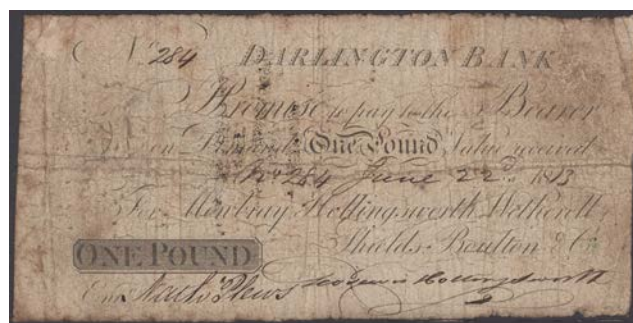 No 284 DARLINGTON BANK
I Promise to pay to the Bearer
on Demand One Pound Value received
No 284 June 22d 1813
For Mowbray Hollingsworth Wetherell
Shields Boulton & Co
ONE POUND
Entd Nath Plews Hollingsworth